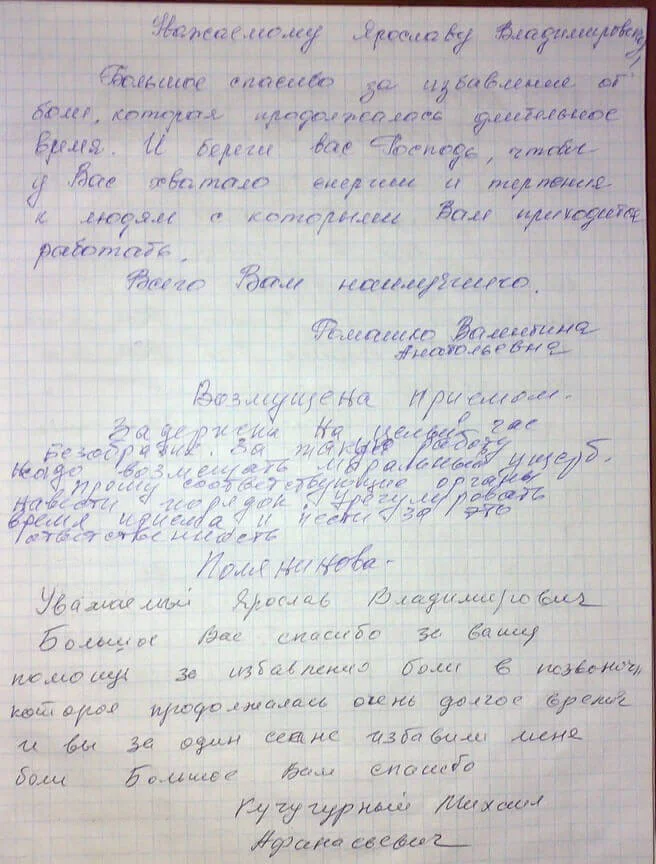 Уважаемому Ярославу Владимировичу
Большое спасибо за избавление от
боли, которая продолжалась длительное
время. И береги вас Господь, чтобы
у Вас хватало енергии и терпения
к людям с которыми Вам приходится
работать.
Всего Вам наилучшего.
Томашко Валентина
Анатольевна
Возмущена приемом.
Задержка на целый час
Безобразие. За такую работу
надо возмещать моральный ущерб.
Прошу соответствующие органы
навести порядок, урегулировать
время приема и нести за это
ответственность
Полянинова.
Уважаемый Ярослав Владимирович
Большое Вас спасибо за вашу
помощь за избавления боли в позвоночн
которая продолжалась очень долгое время
и вы за один сеанс избавили меня
боли Большое Вам спасибо
Кучугурный Михаил
Афанасьевич